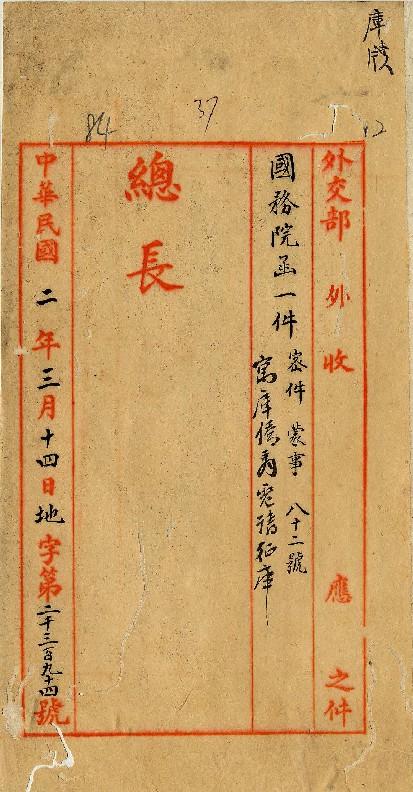 庫
37
84
外交部 外 收 應 之件
國務院函一件 密件 蒙事 八十二號
庫倫 電請征庫
總長
中華民國二年三月十四日地字第二千三百九十四號